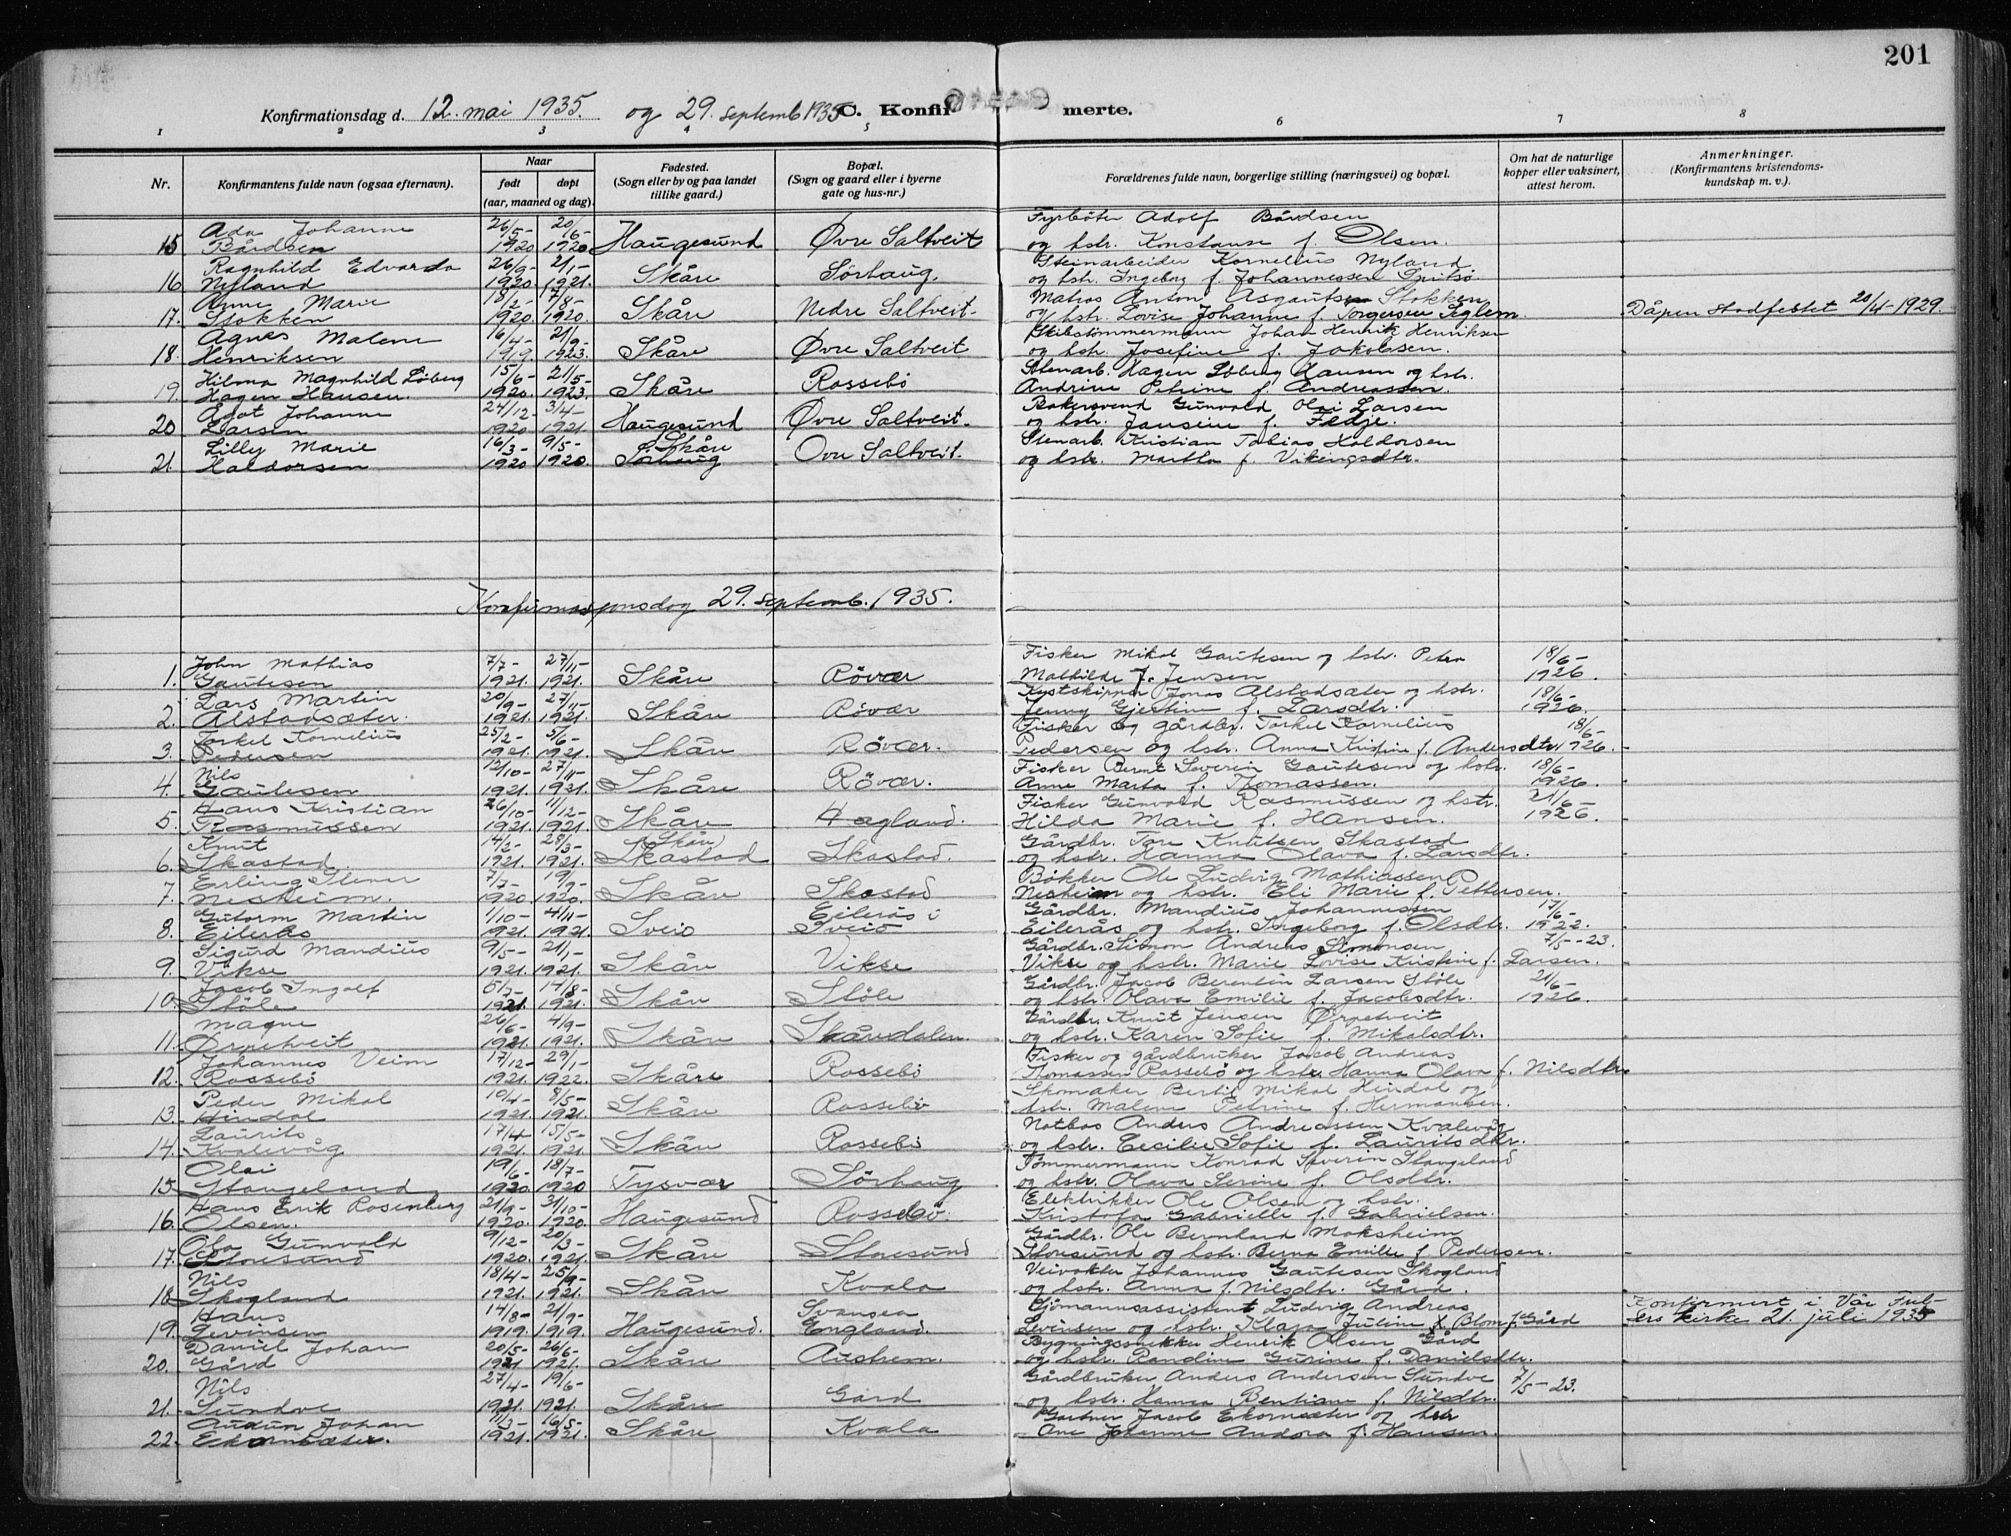 201
Konfirmationsdag d. 12. mai 1935. og 29. septemb 1935 C. Konfirmerte.
1 2 3 4 5 6 7 8
Nr. Konfirmantens fulde navn (ogsaa efternavn). Naar født døpt (aar, maaned og dag). Fødested. (Sogn eller by og paa landet tillike gaard.) Bopæl. (Sogn og gaard eller i byerne gate og hus-nr.) Forældrenes fulde navn, borgerlige stilling (næringsvei) og bopæl. Om hat de naturlige kopper eller vaksinert, attest herom. Anmerkninger. (Konfirmantens kristendomskundskap m. v.).
Ada Johanne 26/5- 20/6- Fyrbøter Adolf Bårdsen
15 Bårdsen 1920 1920 Haugesund Øvre Saltveit og hstr. Konstanse f. Olsen.
Ragnhild Edvarda 26/9- 21/1- Steinarbeider Kornelius Nyland
16 Nyland 1920. 1921. Skåre Sørhaug. og hstr. Ingeborg f. Johannessen
Anne Marie 18/2- 7/8- Matros Anton Asgautsen Stokken
17. Stokken 1920 1920. Skåre Nedre Saltveit- og hstr. Lovise Johanne f. Torgersen Seglem. Dåpen stadfestet 20/4-1929.
Agnes Malene 16/4- 21/9- Skibstømmermann Johan Henrik Henriksen
18. Henriksen 1919. 1923. Skåre Øvre Saltveit og hstr. Josefine f. Jakobsen.
Hilma Magnhild Løberg 15/6- 21/5- Stenarb. Hagen Løberg Hansen og hstr.
19. Hagen Hansen. 1920. 1923. Skåre Rossebø Andrine Petrine f. Andreassen.
Johanne 24/12- 3/4- Bakersvend Gunvald Olai Larsen
20 Larsen 1920 1921 Haugesund Øvre Saltveit- og hstr. f. Fedje.
Lilly Marie 16/3- 9/5- Skåre Stenarb. Kristian Tobias Haldorsen
21. Haldorsen 1920 1920. Sørhaug Øvre Saltveit. og hstr. Martha f. Vikingsdtr.
Konfirmasjonsdag 29. septemb. 1935.
John Mathias 7/7- 27/11- Fisker Mikal Gautesen og hstr. Petra 18/6-
1. Gautesen 1921. 1921. Skåre Røvær Mathilde f. Jensen 1926.
Lars Martin 20/9- 27/11- Kystskipper Jonas Alstadsæter og hstr. 18/6-
2. Alstadsæter. 1921. 1921. Skåre Røvær Jenny Gjertine f. Larsdtr. 1926.
Torkel Kornelius 25/2- 5/6- Fisker og gårdbr. Torkel Kornelius 18/6-
3. Pedersen 1921. 1921. Skåre Røvær. Pedersen og hstr. Anna Kristine f. Andersdtr. 1926.
Nils 12/10- 27/11- Fisker Bernt Severin Gautesen og hstr. 18/6-
4. Gautesen 1921. 1921. Skåre Røvær. Anne Marta f. Thomassen. 1926.
Hans Kristian 26/10- 11/12- Fisker Gunvald Rasmussen og hstr. 21/6-
5. Rasmussen 1921. 1921. Skåre Hagland. Hilda Marie f. Hansen. 1926.
Knut 14/2- 28/3- (Skåre) Gårdbr. Tore Knutsen Skastad
6. Skastad. 1921. 1921. Skastad Skastad. og hstr. Hanna Olava f. Larsdtr.
Erling 7/7- 19/9- Bøkker Ole Ludvig Mathiassen
7. Nesheim. 1920 1920. Skåre Skastad Nesheim og hstr. Eli Marie f. Pettersen.
Gutorm Martin 1/10- 4/11- Eilerås i Gårdbr. Mandius Johannessen 17/6-
8. Eilerås 1921. 1921. Sveio Sveio Eilerås og hstr. Ingeborg f. Olsdtr. 1922.
Sigurd Mandius 9/5- 21/1- Gårdbr. Simon Andreas Simonsen 7/5--23.
9. Vikse 1921. 1921. Skåre Vikse Vikse og hstr. Marie Lovise Kristine f. Larsen.
Jacob Ingolf 5/7- 14/8- Gårdbr. Jacob Berentin Larsen Støle 21/6-
10. Støle 1921. 1921. Skåre Støle og hstr. Olava Emilie f. Jacobsdtr. 1926.
Magne 26/6- 4/9- Gårdbr. Knut Jensen Ørpetveit
11. Ørpetveit 1921. 1921. Skåre Skåredalen. og hstr. Karen Sofie f. Mikalsdtr.
Johannes Veim 17/12- 29/1- Fisker og gårdbruker Jacob Andreas
12. Rossebø 1921. 1922. Skåre Rossebø Thomassen Rossebø og hstr. Hanna Olava f. Nilsdtr.
Peder Mikal 10/4- 8/5- Skomaker Bertil Mikal Hindal og
13. Hindal 1921. 1921. Skåre Rossebø hstr. Malene Petrine f. Hermansen.
Laurits 17/4- 15/5- Notbas Anders Andreassen Kvalevåg
14. Kvalevåg 1921. 1921 Skåre Rossebø og hstr. Cecilie Sofie f. Lauritsdtr.
Olai 19/6- 18/7- Tømmermann Konrad Severin Stangeland
15. Stangeland 1920 1920 Tysvær Sørhaug og hstr. Olava Serine f. Olsdtr.
Hans Erik Rosenberg 21/9- 31/10- Elektrikker Ole Olsen og hstr.
16. Olsen. 1920. 1920. Haugesund Rossebø. Kristofa Gabrielle f. Gabrielsen.
Ola Gunvald 9/12- 20/3- Gårdbr. Ole Bernhard Moksheim
17. Storesund 1920. 1921. Skåre Storesund Storesund og hstr. Berna Emilie f. Pedersen.
Nils 18/4- 25/9- Veivokter Johannes Gautesen Skogland
18. Skogland 1921. 1921. Skåre Kvala og hstr. Anna f. Nilsdtr. Gård.
Hans 14/8- 21/9- Svansea Sjømannsassistent Ludvig Andreas Konfirmert i Vår Frel-
19. Levinsen 1919. 1919. Haugesund. England. Levinsen og hstr. Klara Juline f. Blom f. Gård sers kirke 21. juli 1935
Daniel Johan 20/5- 26/6- Bygningssnekker Henrik Olsen Gård
20. Gård 1921 1921. Skåre Austrem. og hstr. Randine Gurine f. Danielsdtr.
Nils 27/4- 19/6- Gårdbruker Anders Andersen Sundve 7/5-23.
21. Sundve 1921. 1921. Skåre Gård og hstr. Hanna Bentiane f. Nilsdtr.
Audun Johan 11/3- 16/5- Gartner Jacob Ekornsæter og hstr
22. Ekornsæter. 1921. 1921. Skåre Kvala Ane Johanne Andora f. Hansen.